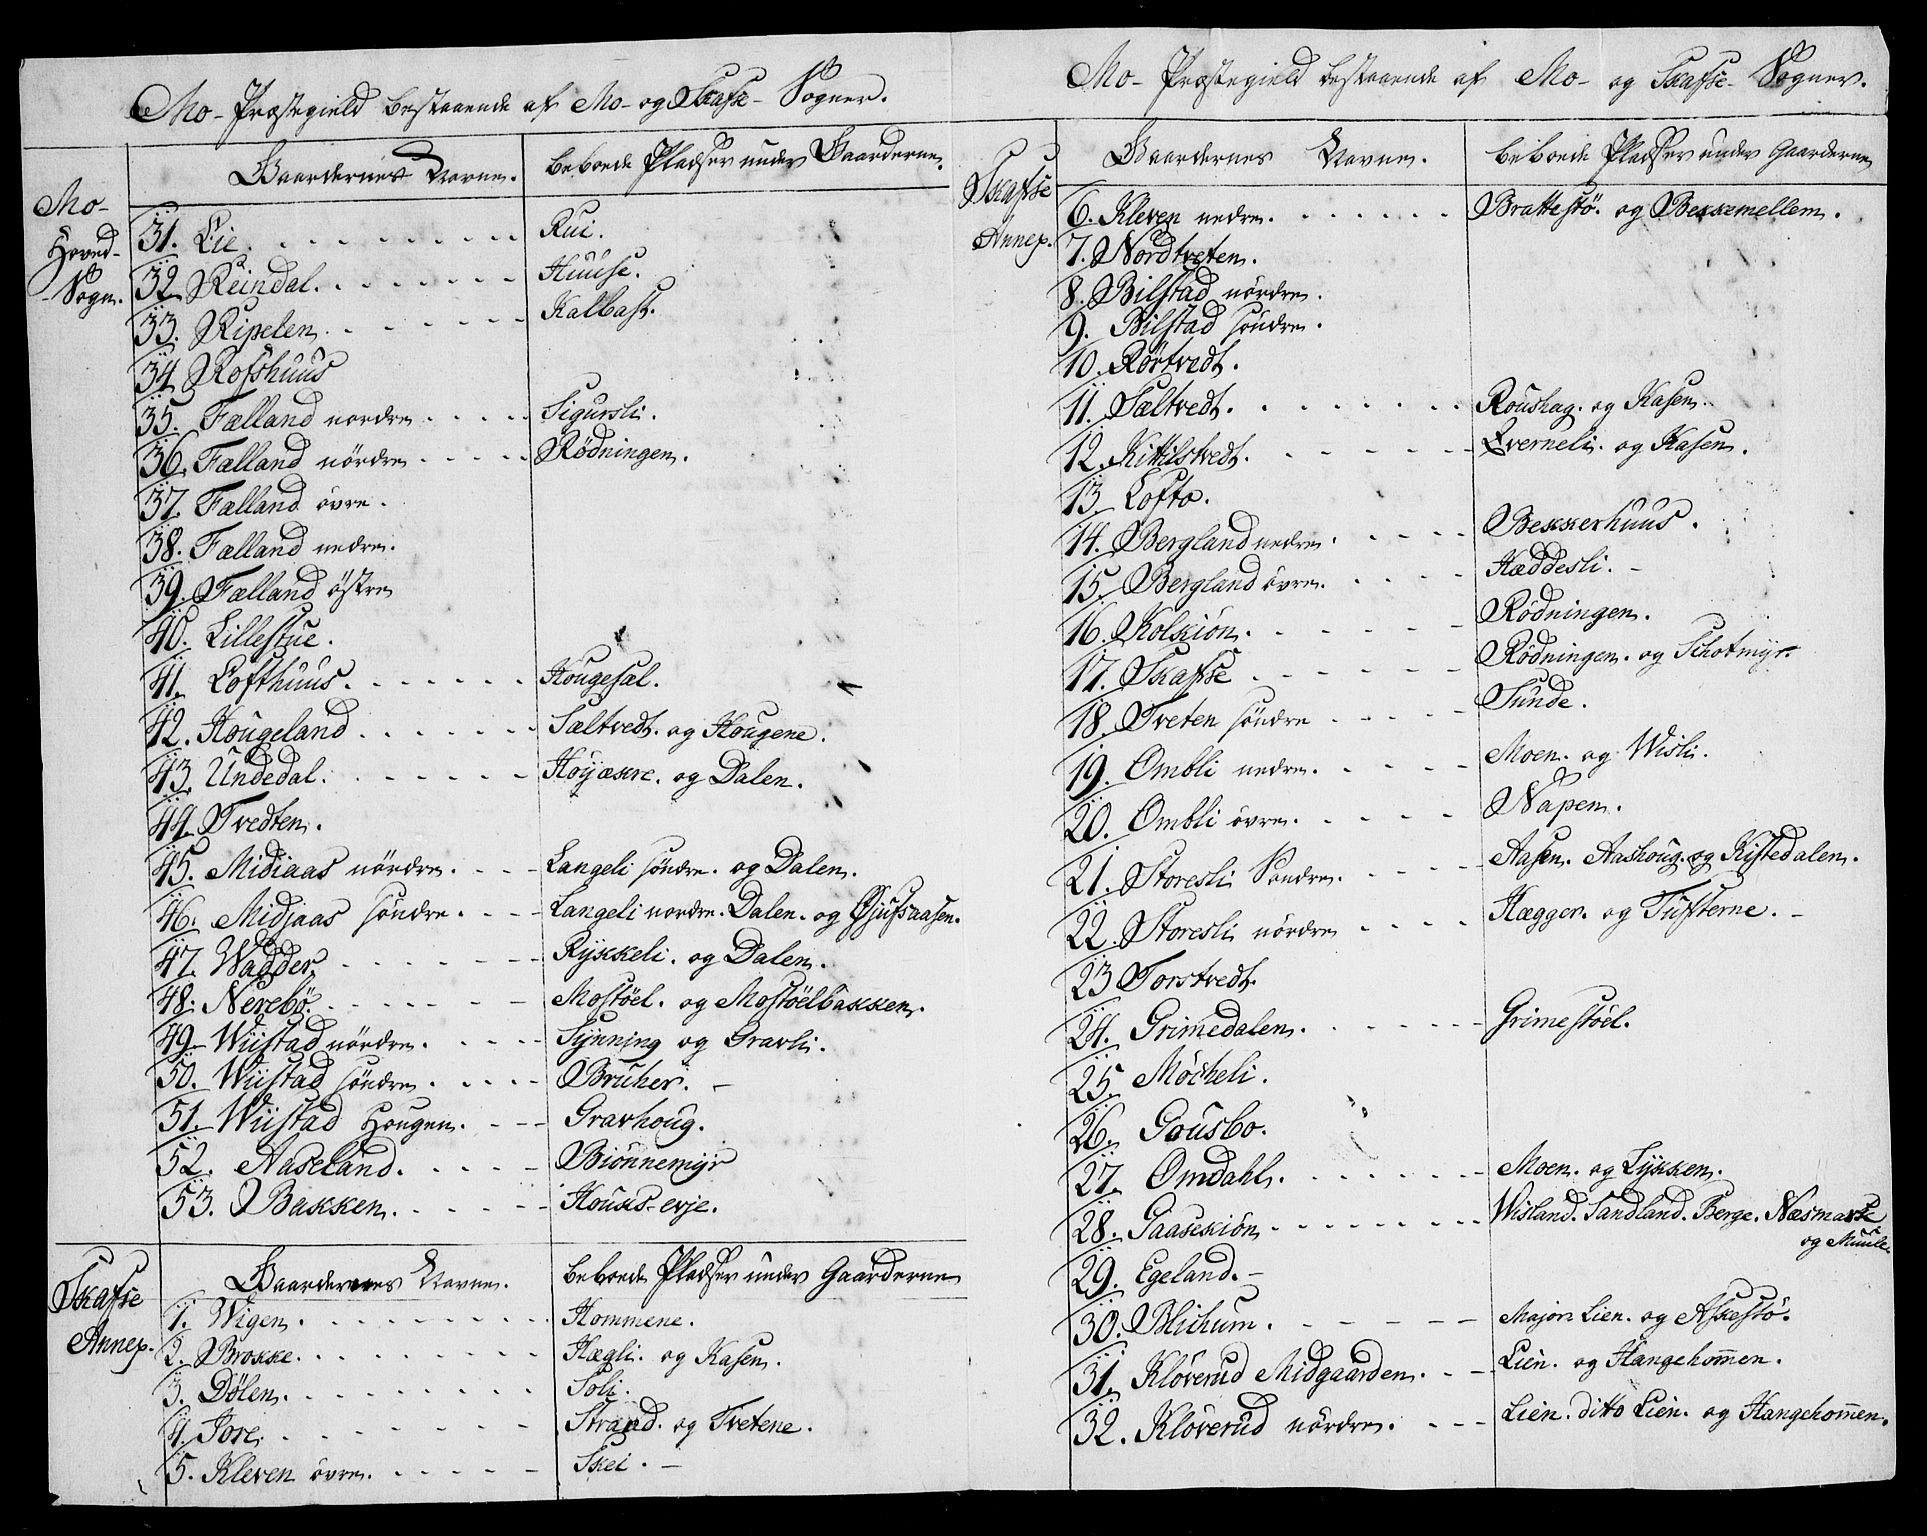 Mo- Præstegield bestaaende af Mo- og Skafse- Sogner.
Mo-
Hoved-
Sogn.
Gaardernes Navne. beboede Pladser under Gaarderne.
31. Lie. Rui.
32 Reindal. Huuse.
33. Ripelen. Kalbast.
34 Rofshuus
35. Fælland nordre Sigursli.
36. Fælland nördre Rödningen.
37. Fælland övre.
38. Fælland nedre.
39. Fælland östre
40. Lillestue.
41. Lofthuus. Hougesal.
42. Hougeland Sæltvedt. og Hougene.
43. Undedal. Höyækre. og Dalen.
44. Tvedten.
45. Midiaas nördre. Langeli söndre. og Dalen.
46. Midjaas söndre. Langeli nordre. Dalen. og Gjufsaasen.
47. Wadder. Rykkeli. og Dalen.
48. Nerebö. Mostöel. og Mostöelbakken.
49. Wiistad nördre. Synning og Gravli.
50. Wiistad söndre. Bruher.
51. Wiistad Hougen. Gravhoug.
52. Aaseland. Biönnemyr
53. Bakken. Houks-evje.
Skafse
Annex.
Gaardernes Navne. beboede Pladser under Gaarderne
1. Wigen. Hommene.
2. Brokke. Hægli. og Kasen.
3. Dölen. Soli.
4. Jore. Strand. og Tvetene.
5. Kleven övre. Skei.
Mo- Præstegield bestaaende af Mo- og Skafse- Sogner.
Skafse
Annex.
Gaardernes Navne. beboede Pladser under Gaarderne
6. Kleven nedre. Brattestö. og Bekkemellem.
7. Nordtveten.
8. Bilstad nördre.
9. Bilstad söndre.
10. Rörtvedt.
11. Sæltvedt. Roushag. og Kasen.
12. Kittilstvedt. Qverneli. og Kasen.
13. Lofto.
14. Bergland nedre. Bekkerhuus.
15. Bergland övre. Hæddesli.
16. Kolskiön. Rödningen.
17. Skafse Rödningen. og Schotmyr.
18. Tveten söndre Sunde.
19. Ombli nedre. Moen. og Wisli.
20. Ombli övre. Napen.
21. Storesli Söndre. Aasen. Aashoug. og Kistedalen.
22. Storesli nördre Hægger. og Tufterne.
23 Torstvedt.
24. Grimedalen. Grimestöel.
25. Möcheli.
26. Gousbo.
27. Omdahl. Moen. og Lykken.
28. Gaaseskiön Wisland. Sandland. Berge. Næsmarke
og Muule.
29. Egeland.
30. Blichum. Major Lien. og Askestö.
31. Klöverud Midgaarden. Lien. og Hangehom̄en.
32. Klöverud nördre. Lien. ditto Lien. og Hangehom̄en.